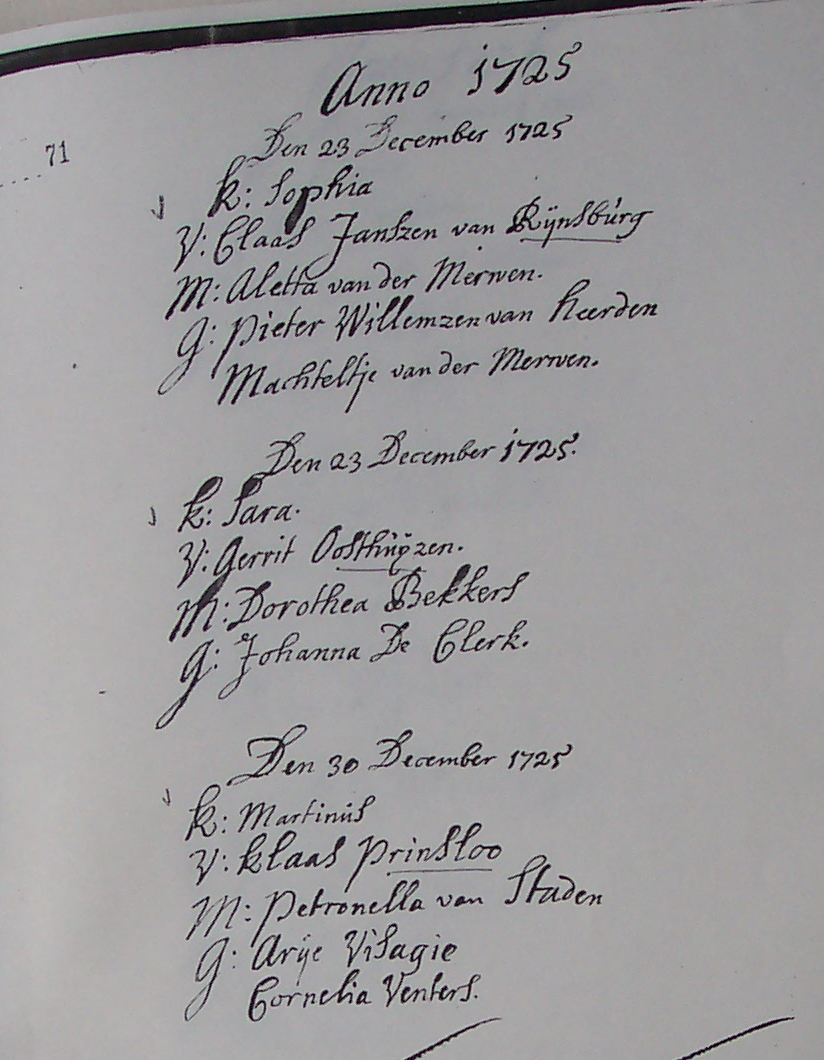 Anno 1725
71
Den 23 December 1725
K: Sophia
V: Claas Janszen van Rÿnsbúrg
M: Aletta van der Merwen.
G: Pieter Willemzen van heerden
Machteltje van der Merwen.
Den 23 December 1725.
K: Sara.
V: Gerrit Oosthúÿzen.
M: Dorothea Bekkers
G: Johanna De Clerk.
Den 30 December 1725
K: Martinús
V: Klaas Prinsloo
M: Petronella van Staden
G: Arÿe Visagie
Cornelia Venters.